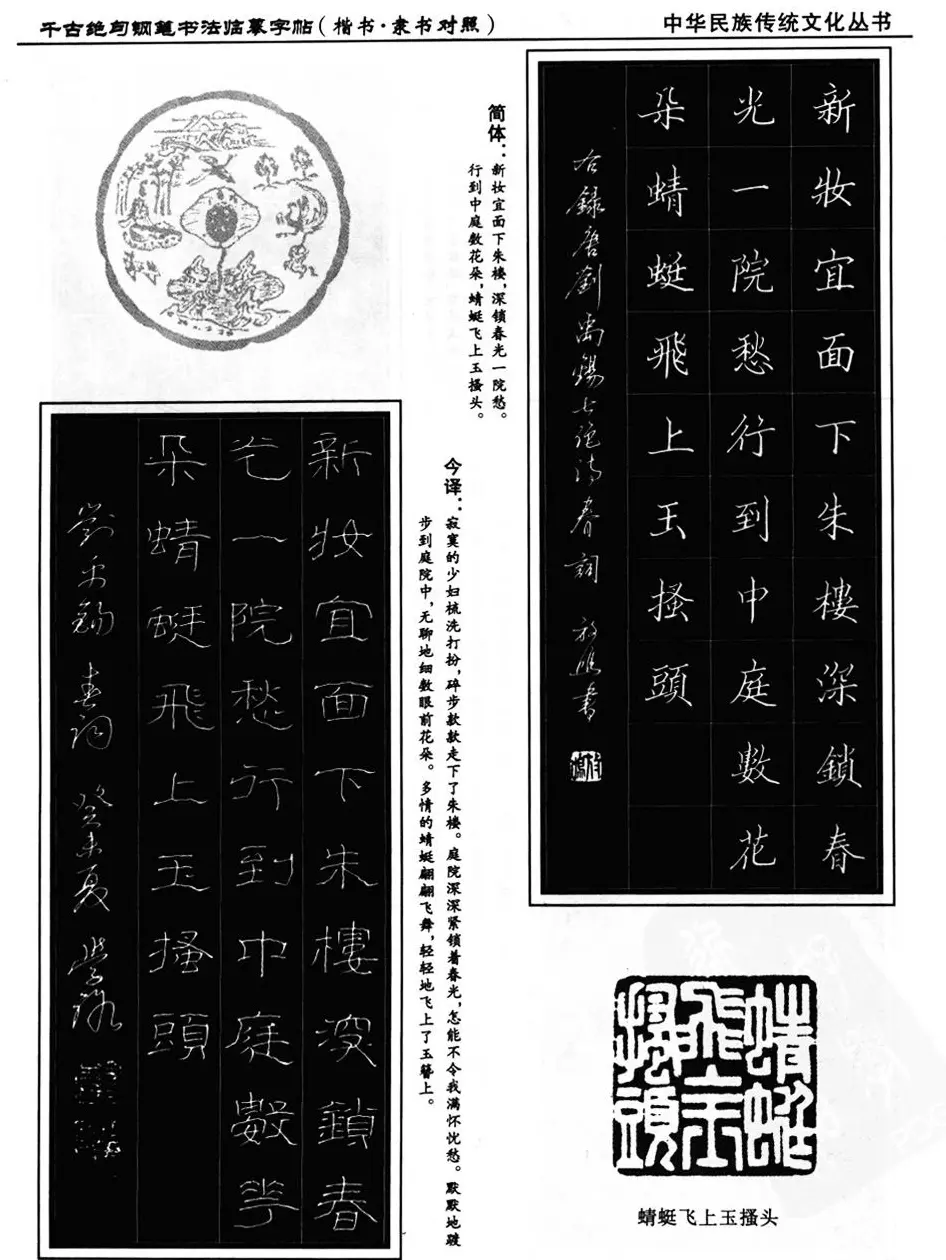 千古绝句钢笔书法临摹字帖(楷书·隶书对照)
中华民族传统文化丛书
新妝宜面下朱樓深鎖春
光一院愁行到中庭數花
朵蜻蜓飛上玉搔頭
右錄唐劉禹錫七絕诗春詞
简体：新妆宜面下朱楼，深锁春光一院愁。
行到中庭数花朵，蜻蜓飞上玉搔头。
今译：寂寞的少妇梳洗打扮，碎步款款走下了朱楼。庭院深深紧锁着春光，怎能不令我满怀忧愁。默默地踱
步到庭院中，无聊地细数眼前花朵。多情的蜻蜓翩翩飞舞，轻轻地飞上了玉簪上。
新妝宜面下朱樓深鎖春
光一院愁行到中庭數花
朵蜻蜓飛上玉搔頭
劉禹錫春词癸未夏
蜻蜓
飛上玉
搔頭
蜻蜓飞上玉搔头